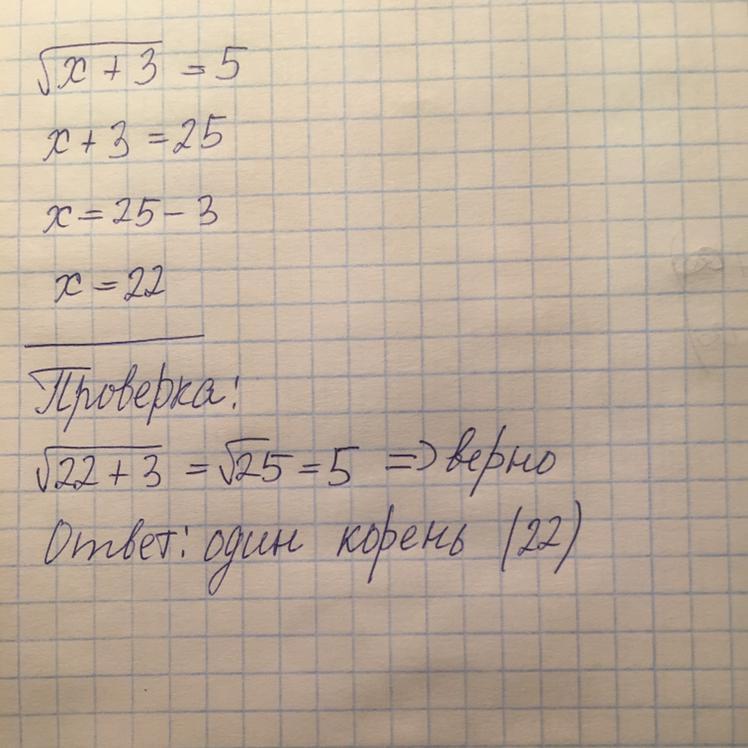 √x + 3 = 5
x + 3 = 25
x = 25 - 3
x = 22
Проверка:
√22 + 3 = √25 = 5 => верно
Ответ: один корень (22)